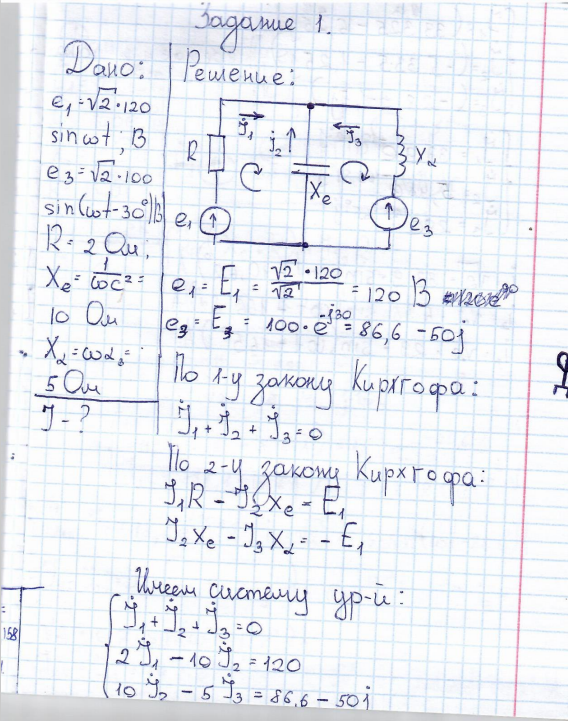 Задание 1.
Дано:
e₁ = √2·120
sin ωt ; В
e₃ = √2·100
sin(ωt-30°)В
R = 2 Ом;
Xc = 1/ωc² =
10 Ом
X₂ = ωL₃ =
5 Ом
J - ?
Решение:
R
J̇₁
J̇₂
J̇₃
X₂
Xc
e₁
e₃
e₁ = E₁ = √2·120/√2 = 120 В
e₃ = Ė₃ = 100·e^-j30 = 86,6 - 50j
По 1-у закону Кирхгофа:
J̇₁ + J̇₂ + J̇₃ = 0
По 2-у закону Кирхгофа:
J₁R - J₂Xc = E₁
J₂Xc - J₃X₂ = - E₁
Имеем систему ур-й:
J̇₁ + J̇₂ + J̇₃ = 0
2J̇₁ - 10J̇₂ = 120
10J̇₂ - 5J̇₃ = 86,6 - 50j
158